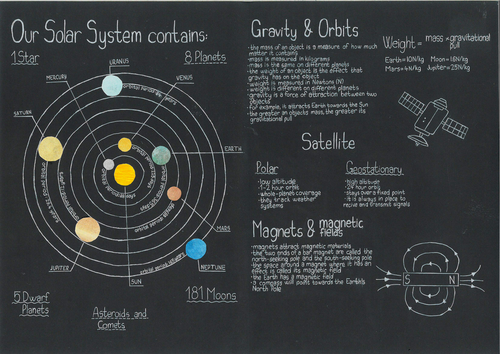 Our Solar System contains:
1 Star
8 Planets
URANUS
MERCURY
VENUS
SATURN
EARTH
MARS
JUPITER
NEPTUNE
SUN
5 Dwarf
Planets
Asteroids and
Comets
181 Moons
Gravity & Orbits
•the mass of an object is a measure of how much
matter it contains
•mass is measured in kilograms
•mass is the same on different planets
•the weight of an object is the effect that
gravity has on the object
•weight is measured in Newtons (N)
•weight is different on different planets
•gravity is a force of attraction between two
objects
•for example, it attracts Earth towards the Sun
•the greater an objects mass, the greater its
gravitational pull
Weight= mass × gravitational
pull
Earth=10N/kg Moon=1.6N/kg
Mars=4N/kg Jupiter=25N/kg
Satellite
Polar
•low altitude
•1-2 hour orbit
•whole-planet coverage
•they track weather
systems
Geostationary
•high altitude
•24 hour orbit
•stays over a fixed point
•it is always in place to
receive and transmit signals
Magnets & magnetic
fields
•magnets attract magnetic materials
•the two ends of a bar magnet are called the
north-seeking pole and the south-seeking pole
•the space around a magnet where it has an
effect is called its magnetic field
•the Earth has a magnetic field
•a compass will point towards the Earth's
North Pole
S N